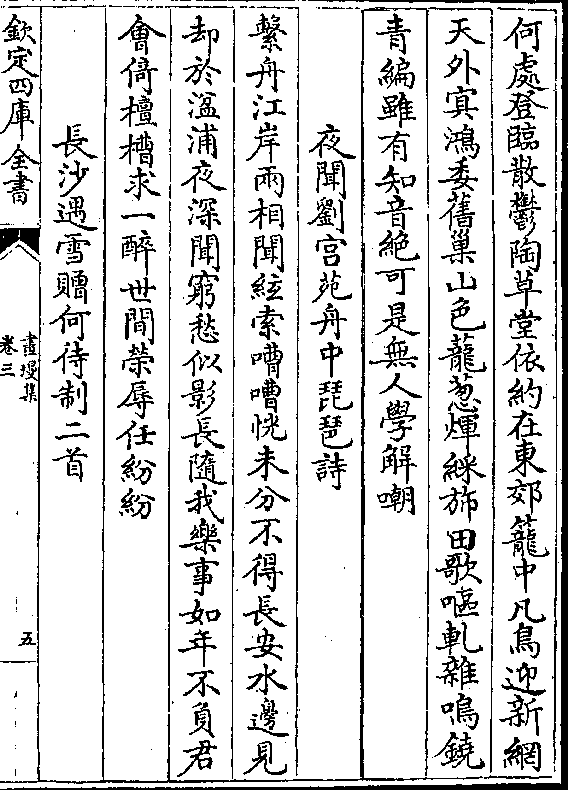 何處登臨散鬱陶草堂依約在東郊籠中凡鳥迎新網
天外寅鴻委舊巢山色蘢葱煇綵斾田歌嘔軋雜鳴鐃
青編雖有知音絶可是無人學解嘲
夜聞劉宫苑舟中琵琶詩
繫舟江岸兩相聞絃索嘈嘈恍未分不得長安水邊見
却於湓浦夜深聞窮愁似影長隨我樂事如年不負君
會倚檀槽求一醉世間榮辱任紛紛
長沙遇雪贈何待制二首
欽定四庫全書
畫墁集
卷三
五